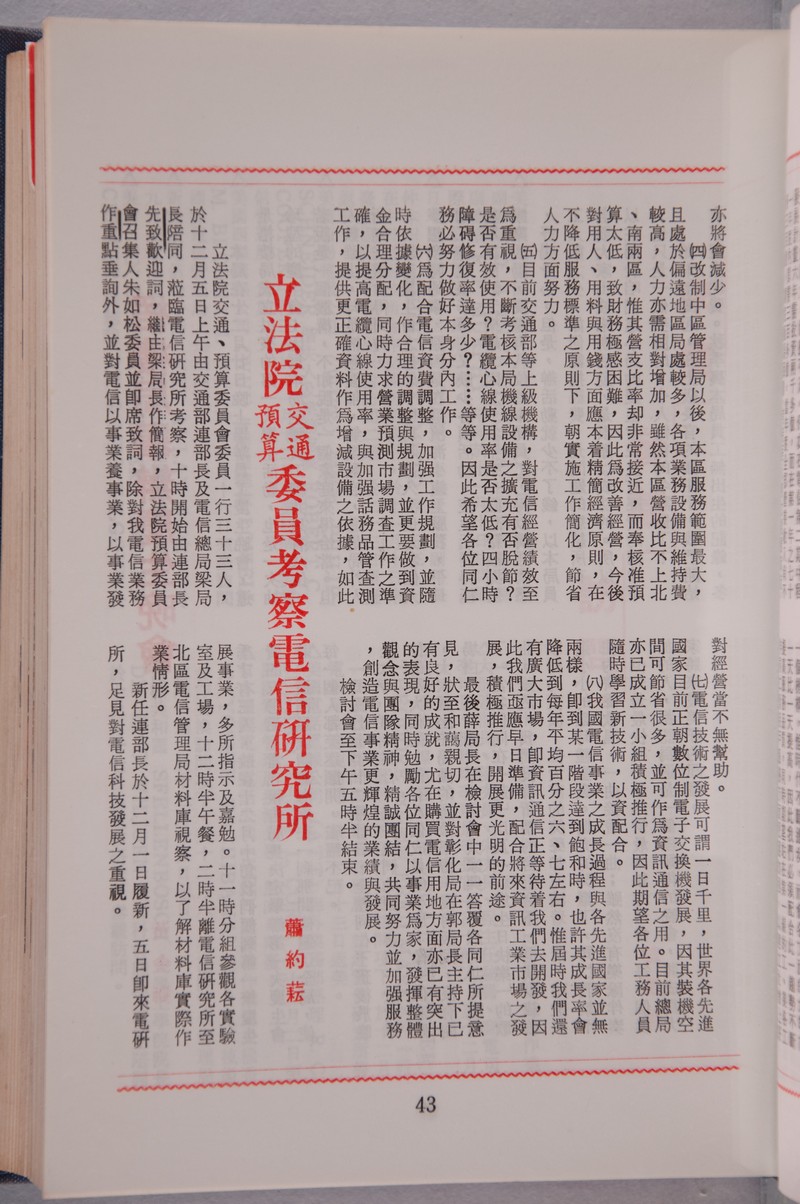 亦將會減少。
㈣改制中區管理局以後，本區服務範圍最大，
且處於偏遠地區局處較多，各項業務設備與維持費
較高，人力亦需相對增加，雖然本區營收比不上北
、南兩區，惟其營支比率却非常接近，而奉核准預
算太低，致財務極感困難，因此爲改善經營，今後
對用人、用料與用錢方面應本着精簡經濟原則，在
不降低服務標準之原則下，朝實施工作簡化，節省
人力方面努力。
㈤目前交通部等上級機構，對電信經營績效至
爲重視，不斷考核本局機線設備之擴充有否脫節？
是否有效使用？電纜心線使用率是否太低？四小時
障碍修復率達多少？……等等。因此希望各位同仁
務必努力做好本身分內工作。
㈥爲配合電信資費調整，加强工作規劃，並隨
時依據變化，作合理的調整與規劃，並更要做到資
金合理分配，同時力求營業預測市場調查工作之準
確，以提高電纜心線使用率，與加强話務品管查測
工作，提供更正確資料作爲增減設備之依據，如此
對經營當不無幫助。
㈦電信技術之發展可謂一日千里，世界各先進
國家目前正朝數位制電子交換機發展，因其裝機空
間可節省很多，並可作爲資訊通信之用。目前總局
亦已成立一小組積極推行，因此期望各位工務人員
隨時學習新技術，以資配合。
㈧我國電信事業之成長過程與各先進國家並無
兩樣，卽到某一階段達到飽和時，也許其成長率會
降低到每年平均百分之六、七左右。惟屆時我們還
有廣大市場，卽資訊通信正等待着我們去開發，因
此我們亟應早日準備，配合將來資訊工業市場之發
展，積極推行，開展更光明的前途。
最後薛局長在檢討會中一一答覆各同仁所提意
見，狀至和藹親切，並對彰化局在郭局長主持下已
有良好的成就，尤在購買電信用地方面亦已有突出
的表現，同時勉勵各位同仁以事業爲家，發揮整體
觀念與團隊精神，精誠團結，共同努力並加强服務
，創造電信事業更輝煌的業績與發展。
檢討會至下午五時半結束。
立法院交通預算委員考察電信研究所
蕭約耘
立法院交通、預算委員會委員一行三十三人，
於十二月五日上午由交通部連部長及電信總局梁局
長陪同，蒞臨電信研究所考察，十時開始由連部長
先致歡迎詞，繼由梁局長作簡報，立法院預算委員
會召集人朱如松委員並卽席致詞，除對我電信業務
作重點垂詢外，並對電信以事業養事業，以事業發
展事業，多所指示及嘉勉。十一時分組參觀各實驗
室及工場，十二時半午餐，二時半離電信研究所至
北區電信管理局材料庫視察，以了解材料庫實際作
業情形。
新任連部長於十二月一日履新，五日卽來電研
所，足見對電信科技發展之重視。
43